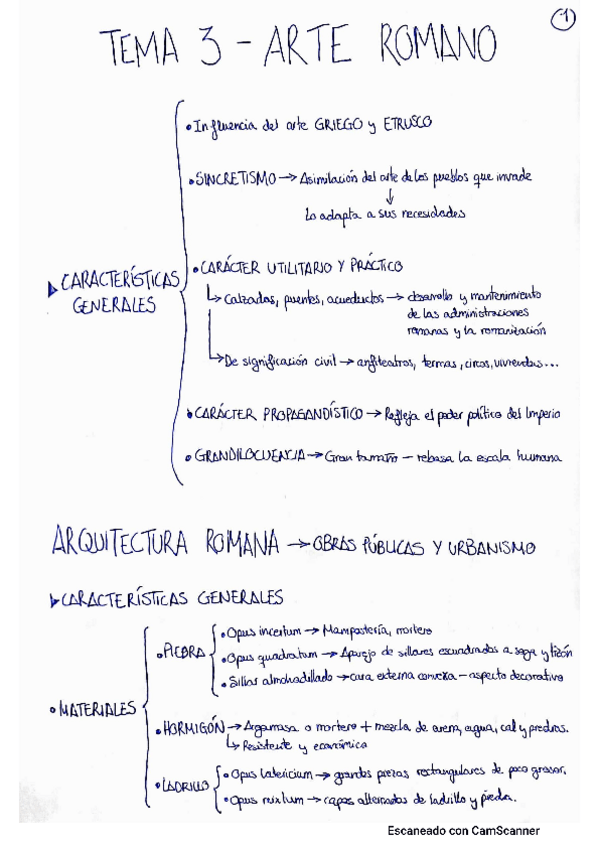 1
TEMA 3 - ARTE ROMANO
• Influencia del arte GRIEGO y ETRUSCO
• SINCRETISMO → Asimilación del arte de los pueblos que invade
↓
Lo adapta a sus necesidades
▶ CARACTERÍSTICAS GENERALES
• CARÁCTER UTILITARIO Y PRÁCTICO
↳ Calzadas, puentes, acueductos → desarrollo y mantenimiento
de las administraciones
romanas y la romanización
↳ De significación civil → anfiteatros, termas, circos, viviendas...
• CARÁCTER PROPAGANDÍSTICO → Refleja el poder político del Imperio
• GRANDILOCUENCIA → Gran tamaño – rebasa la escala humana
ARQUITECTURA ROMANA → OBRAS PÚBLICAS Y URBANISMO
▶ CARACTERÍSTICAS GENERALES
• MATERIALES
• PIEDRA
• Opus incertum → Mampostería, mortero
• Opus quadratum → Aparejo de sillares escuadrados a soga y tizón
• Sillar almohadillado → cara externa convexa – aspecto decorativo
• HORMIGÓN → Argamasa o mortero + mezcla de arena, agua, cal y piedras.
↳ Resistente y económica
• LADRILLO
• Opus latericium → grandes piezas rectangulares de poco grosor.
• Opus mixtum → capas alternadas de ladrillo y piedra.
Escaneado con CamScanner